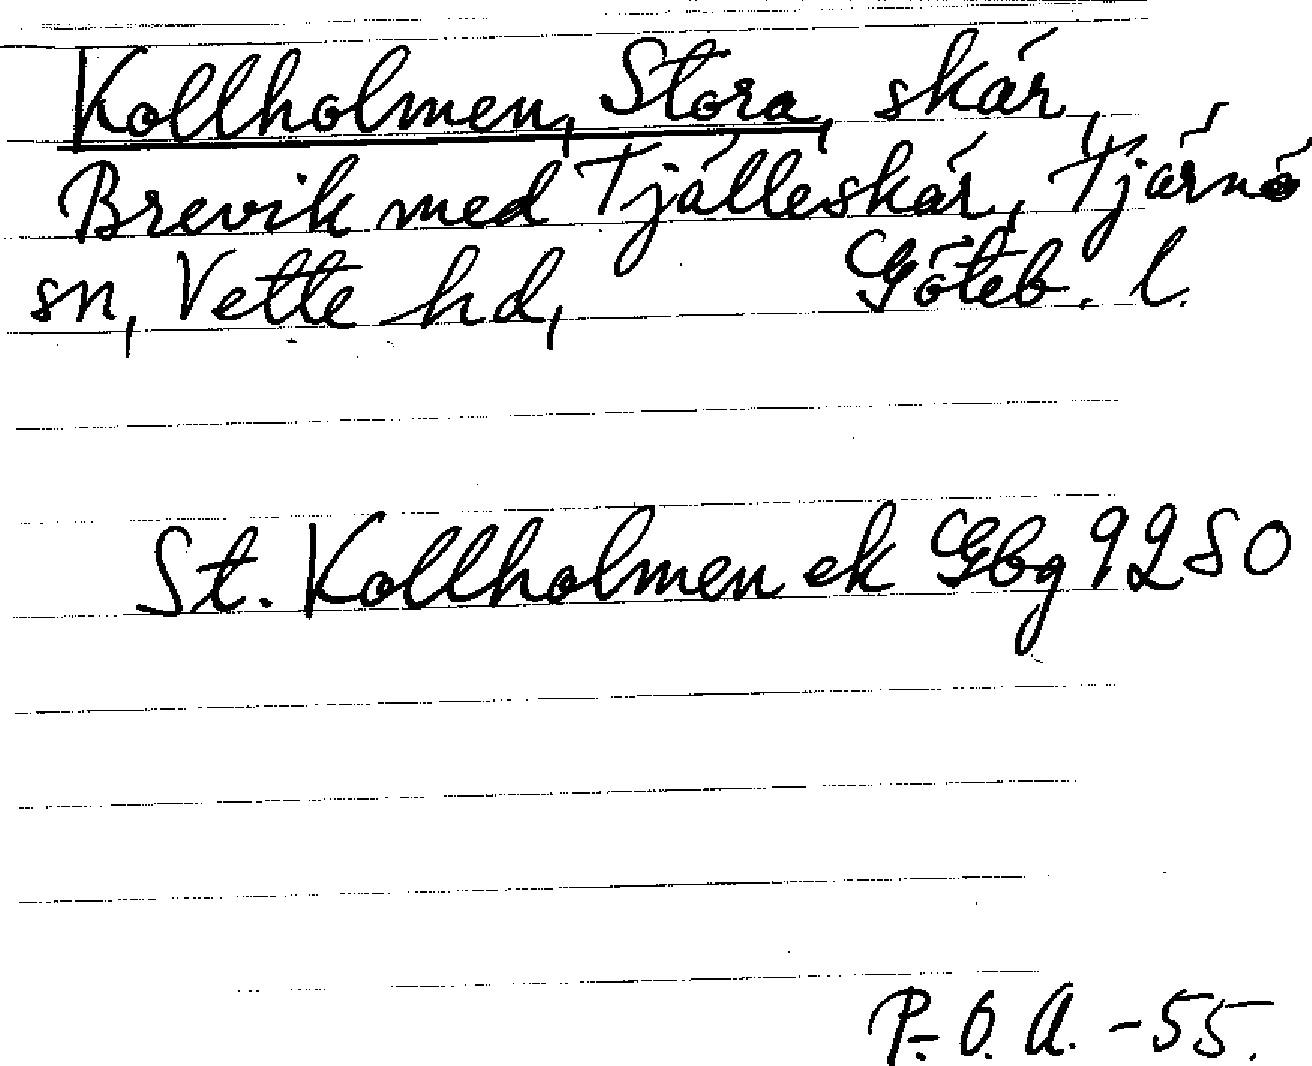 Kollholmen, Stora, skär,
Brevik med Tjälleskär, Tjärnö
sn, Vette hd, Göteb. l.
St. Kollholmen ek Gbg 9280
P.-O. A. -55.